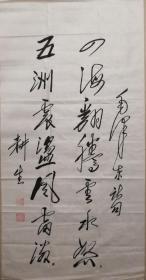 毛泽东诗句
四海翻腾云水怒
五洲震荡风雷激
耕生